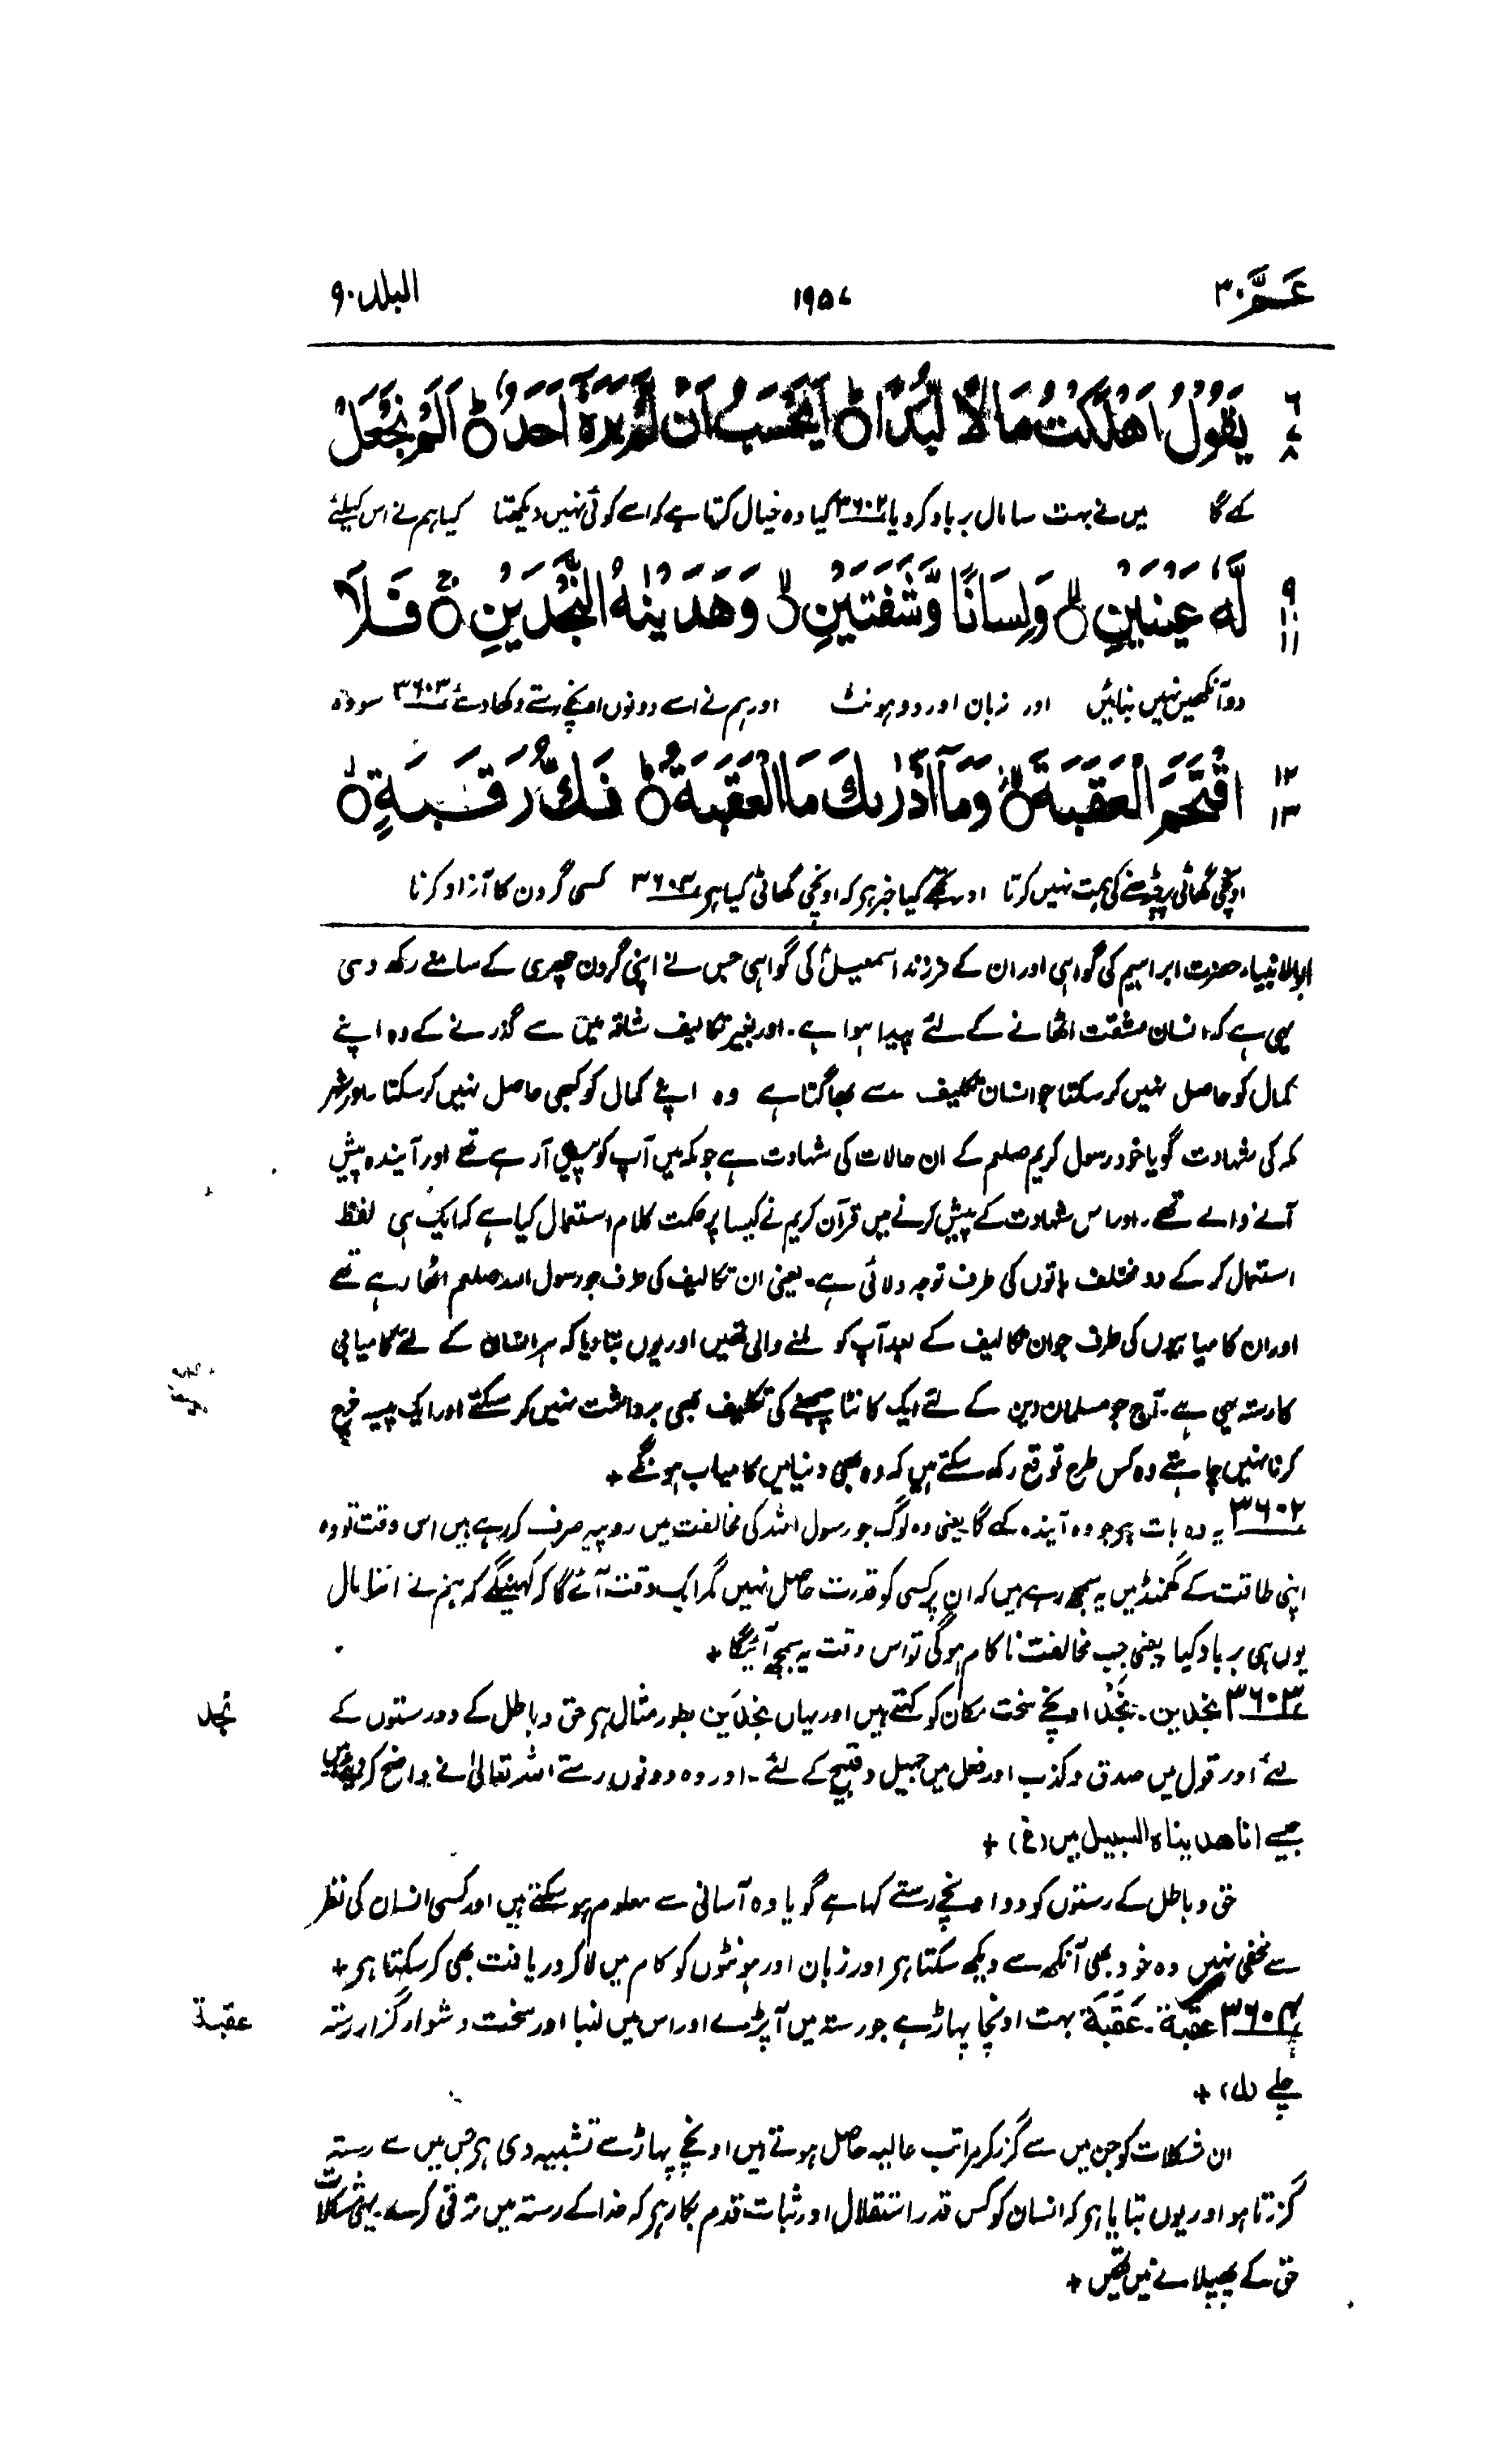 عَمَّ ٣٠ ١٩٥٧ البلد ٩٠
٦ ٧ ٨ يَقُوْلُ اَهْلَكْتُ مَالًا لُّبَدًا ۞ اَيَحْسَبُ اَنْ لَّمْ يَرَهٗٓ اَحَدٌ ۞ اَلَمْ نَجْعَلْ
کہے گا میں نے بہت سا مال برباد کر دیا ۳۶۰۲ کیا وہ خیال کرتا ہے کہ اسے کوئی نہیں دیکھتا کیا ہم نے اس کیلئے
٩ ١٠ ١١ لَّهٗ عَيْنَيْنِ ۞ وَلِسَانًا وَّشَفَتَيْنِ ۞ وَهَدَيْنٰهُ النَّجْدَيْنِ ۞ فَلَا
دو آنکھیں نہیں بنائیں اور زبان اور دو ہونٹ اور ہم نے اسے دونوں اونچے رستے دکھا دئے ۳۶۰۳ سو وہ
١٢ ١٣ اقْتَحَمَ الْعَقَبَةَ ۞ وَمَآ اَدْرٰىكَ مَا الْعَقَبَةُ ۞ فَكُّ رَقَبَةٍ ۞
اونچی گھاٹی پر چڑھنے کی ہمت نہیں کرتا اور تجھے کیا خبر ہے کہ اونچی گھاٹی کیا ہے ۳۶۰۴ کسی گردن کا آزاد کرنا
ابوالانبیاء حضرت ابراہیم کی گواہی اور ان کے فرزند اسمعیل کی گواہی جس نے اپنی گردن چھری کے سامنے رکھ دی
یہی ہے کہ انسان مشقت اٹھانے کے لئے پیدا ہوا ہے۔ اور بغیر تکالیف شاقہ میں سے گذرنے کے وہ اپنے
کمال کو حاصل نہیں کر سکتا جو انسان تکلیف سے بھاگتا ہے وہ اپنے کمال کو کبھی حاصل نہیں کر سکتا۔ اور شہر
مکہ کی شہادت گویا خود رسول کریم صلعم کے ان حالات کی شہادت ہے جو مکہ میں آپ کو پیش آ رہے تھے اور آیندہ پیش
آنے والے تھے۔ اور اس شہادت کے پیش کرنے میں قرآن کریم نے کیسا پر حکمت کلام استعمال کیا ہے کہ ایک ہی لفظ
استعمال کر کے دو مختلف باتوں کی طرف توجہ دلائی ہے۔ یعنی ان تکالیف کی طرف جو رسول اللہ صلعم اٹھا رہے تھے
اور ان کامیابیوں کی طرف جو ان تکالیف کے بعد آپ کو ملنے والی تھیں اور یوں بتا دیا کہ ہر انسان کے لئے کامیابی
کا رستہ یہی ہے۔ آج جو مسلمان دین کے لئے ایک کانٹا چبھنے کی تکلیف بھی برداشت نہیں کر سکتے اور ایک پیسہ خرچ
کرنا نہیں چاہتے وہ کس طرح توقع رکھ سکتے ہیں کہ وہ بھی دنیا میں کامیاب ہونگے +
۳۶۰۲ یہ وہ بات ہے جو وہ آیندہ کہے گا یعنی وہ لوگ جو رسول اللہ کی مخالفت میں روپیہ صرف کر رہے ہیں اس وقت تو وہ
اپنی طاقت کے گھمنڈ میں یہ سمجھ رہے ہیں کہ ان پر کسی کو قدرت حاصل نہیں مگر ایک وقت آئے گا کہ کہینگے کہ ہم نے اتنا مال
یوں ہی برباد کیا یعنی جب مخالفت ناکام ہو گی تو اس وقت یہ سمجھ آئیگا +
۳۶۰۳ نجدین۔ نَجْد اونچے سخت مکان کو کہتے ہیں اور یہاں نجدَین بطور مثال ہے حق و باطل کے دو رستوں کے
نجد
لئے اور قول میں صدق و کذب اور فعل میں جمیل و قبیح کے لئے۔ اور وہ دونوں رستے اللہ تعالیٰ نے واضح کر دیئے ہیں
جیسے انا ھدیناہ السبیل میں (غ) +
حق و باطل کے رستوں کو دو اونچے رستے کہا ہے گویا وہ آسانی سے معلوم ہو سکتے ہیں اور کسی انسان کی نظر
سے مخفی نہیں وہ خود بھی آنکھ سے دیکھ سکتا ہے اور زبان اور ہونٹوں کو کام میں لا کر دریافت بھی کر سکتا ہے +
۳۶۰۴ عقبة۔ عَقَبَة بہت اونچا پہاڑ ہے جو رستہ میں آپڑے اور اس میں لنبا اور سخت دشوار گزار رستہ
عقبة
چلے (ل) +
ان مشکلات کو جن میں سے گزر کر مراتب عالیہ حاصل ہوتے ہیں اونچے پہاڑ سے تشبیہ دی ہے جس میں سے رستہ
گزرتا ہو اور یوں بتایا ہے کہ انسان کو کس قدر استقلال اور ثبات قدم بکار ہے کہ خدا کے رستہ میں ترقی کرے۔ یہی مشکلات
حق کے پھیلانے میں تھیں +